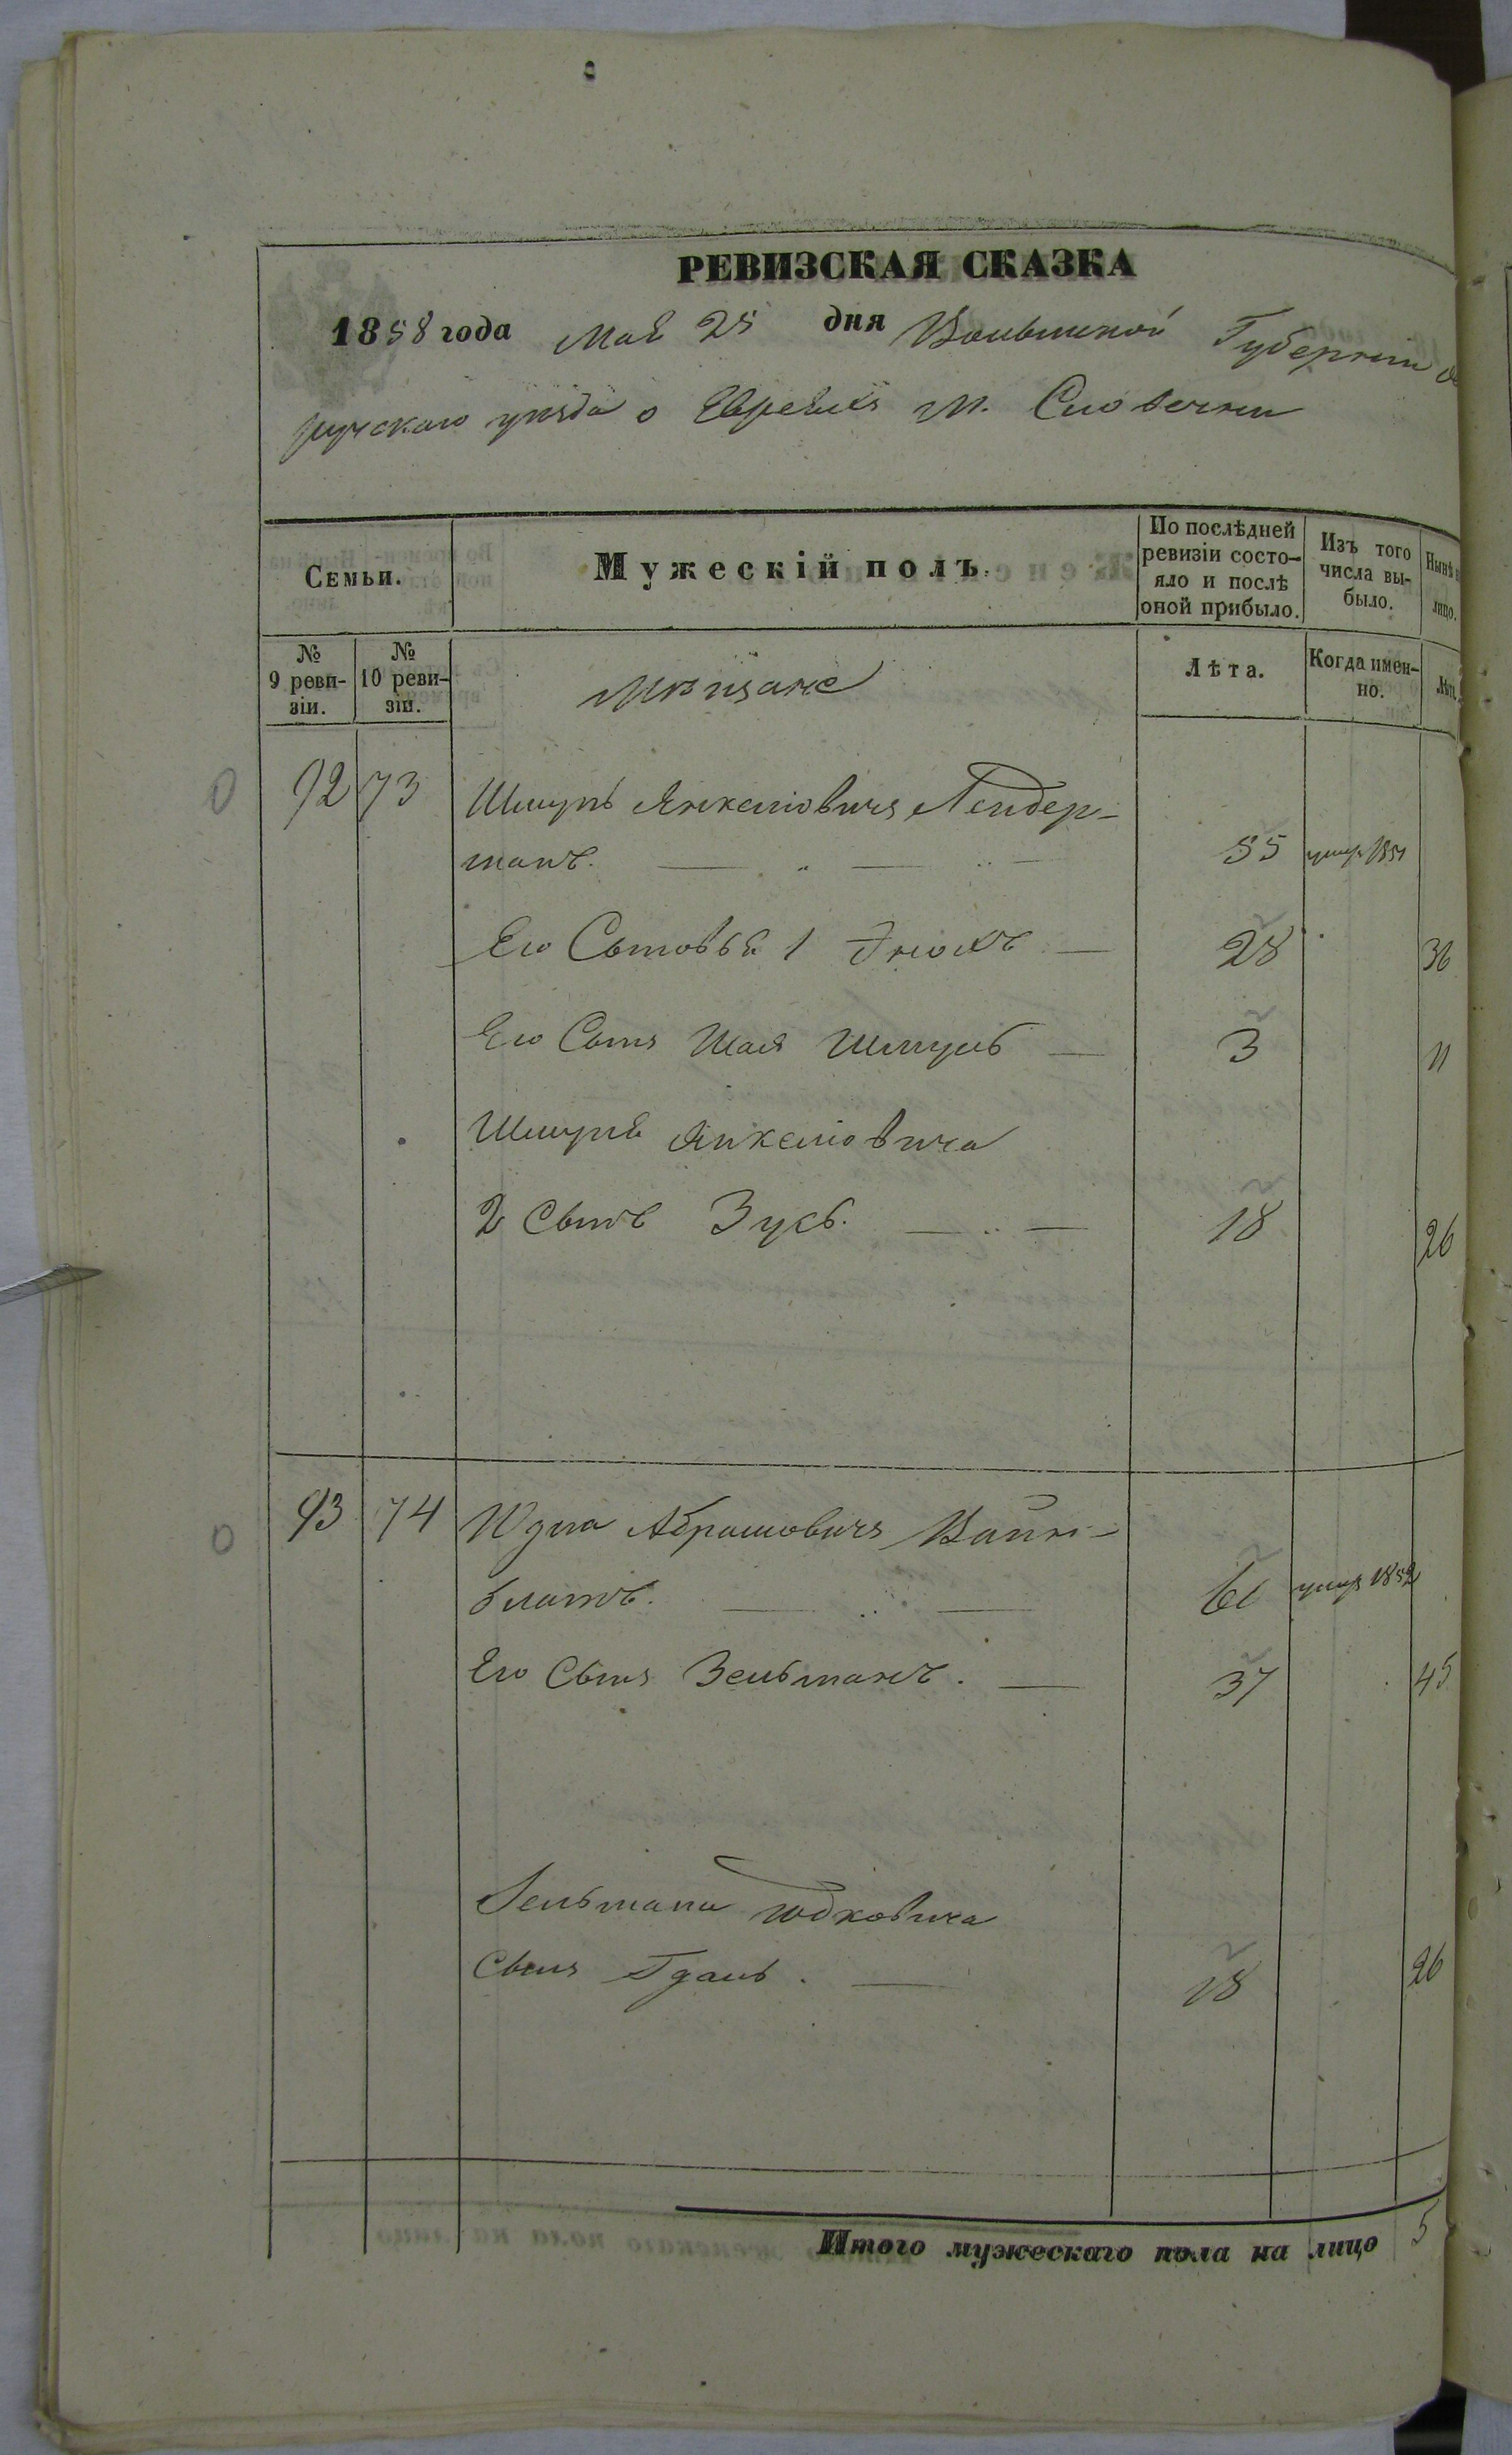 РЕВИЗСКАЯ СКАЗКА
1858 года Мая 25 дня Волынской Губерніи
ручскаго уѣзда о Евреяхъ м. Словечни
Семьи.
Мужескій полъ.
По послѣдней ревизіи состо-яло и послѣ оной прибыло.
Изъ того числа вы-было.
Нынѣ
лицо.
№ 9 реви-зіи.
№ 10 реви-зіи.
Мѣщане
Лѣта.
Когда имен-но.
Лѣта.
92 73 Шмуль Янкеліовичъ Лендер-
манъ. 55 умер 1851
Его Сыновья 1 Энохъ 28 36
Его Сынъ Шая Шмуль 3 11
Шмуля Янкеліовича
2 Сынъ Зусь. 18 26
93 74 Юдка Абрамовичъ Вайн-
блатъ. 61 умер 1852
Его Сынъ Зельманъ. 37 45
Зельмана Юдковича
Сынъ Гдаль. 18 26
Итого мужескаго пола на лицо 5